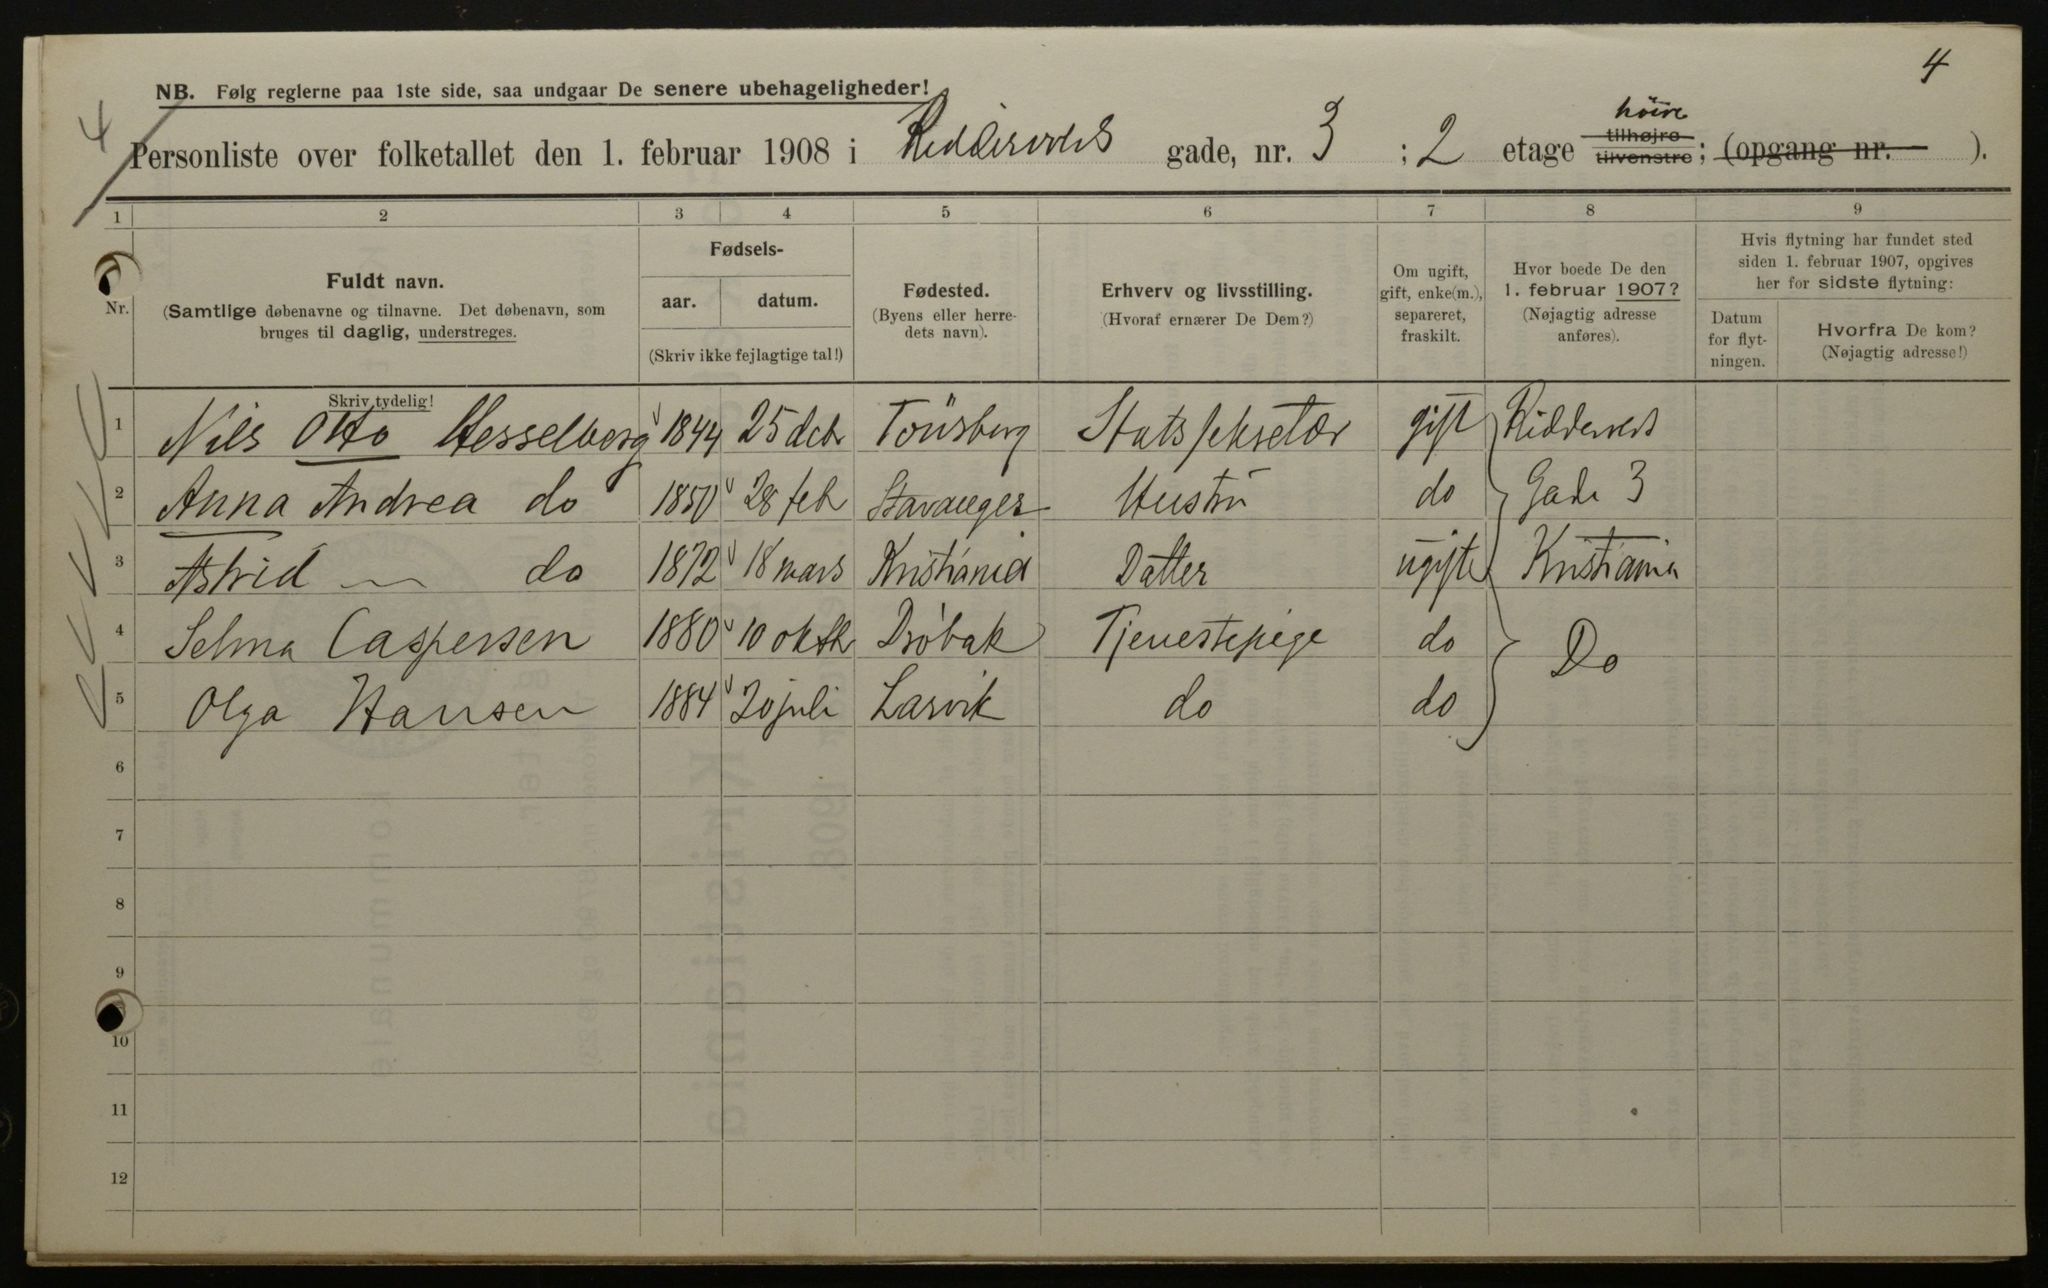 4
NB. Følg reglerne paa 1ste side, saa undgaar De senere ubehageligheder!
4
høire
Personliste over folketallet den 1. februar 1908 i Riddervolds gade, nr. 3 ; 2 etage tilhøjre tilvenstre; (opgang nr. ).
1 2 3 4 5 6 7 8 9
Nr.
Fuldt navn.
(Samtlige døbenavne og tilnavne. Det døbenavn, som
bruges til daglig, understreges.
Fødsels-
aar. datum.
(Skriv ikke fejlagtige tal!)
Fødested.
(Byens eller herre-
dets navn).
Erhverv og livsstilling.
(Hvoraf ernærer De Dem?)
Om ugift,
gift, enke(m.),
separeret,
fraskilt.
Hvor boede De den
1. februar 1907?
(Nøjagtig adresse
anføres).
Hvis flytning har fundet sted
siden 1. februar 1907, opgives
her for sidste flytning:
Datum
for flyt-
ningen.
Hvorfra De kom?
(Nøjagtig adresse!)
Skriv tydelig!
1 Nils Otto Hesselberg 1844 25 dcbr Tönsberg Statssekretær gift Riddervolds
2 Anna Andrea do 1850 28 feb Stavanger Hustru do Gade 3
3 Astrid do 1872 18 mars Kristiania Datter ugift Kristiania
4 Selma Caspersen 1880 10 oktb Dröbak Tjenestepige do Do
5 Olga Hansen 1884 20 juli Larvik do do
6
7
8
9
10
11
12